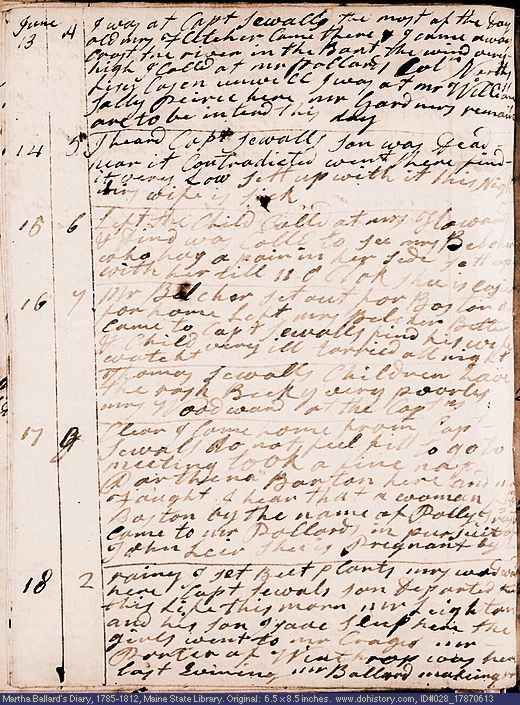 June 13 4 I was at Capt Sewalls the most of the Day
old mrs Fletcher Came there & I came away
Crost the river in the Boat the wind very
high I Calld at mr Pollards, Colo North
his is unwell I was at mr Williams
Sally Peirce here mr Gardners remains
are to be interd this day
14 5 I heard Capt Sewalls son was Dead
near it Contradicted went there find
it very Low sett up with it this Night
his wife is sick
15 6 Left the Child Calld at mrs Howards
& was Calld to see mrs Belcher
who has a pain in her side sett up
with her till 11 O Clok she is easy
16 7 Mr Belcher set out for Boston
for home left mrs Belcher Better
Came to Capt Sewalls find his wife
& Child very ill tarried all night
watcht
Thomas Sewalls Children have
the rash Beckey very poorly
mrs Woodward at the Capts
17 g Clear I Came home from Capt
Sewals do not feel fitt to go to
meeting took a fine nap
Parthena Barton here and
I hear that a woman
Boston by the name of Polly
Came to mr Pollards in pursuit of
John Shee is Pregnant by
18 2 rainy I set Beet plants mrs woodward
here Capt Sewals son Departed
this Life this morn mr
and his son Isaac Sleep here the
girls went to mr Crages mr
Porter of Winthrop was here
last Evining mr Ballard making
Martha Ballard's Diary, 1785-1812, Maine State Library. Original: 6.5 x 8.5 inches. www.dohistory.com, ID#028_17870613